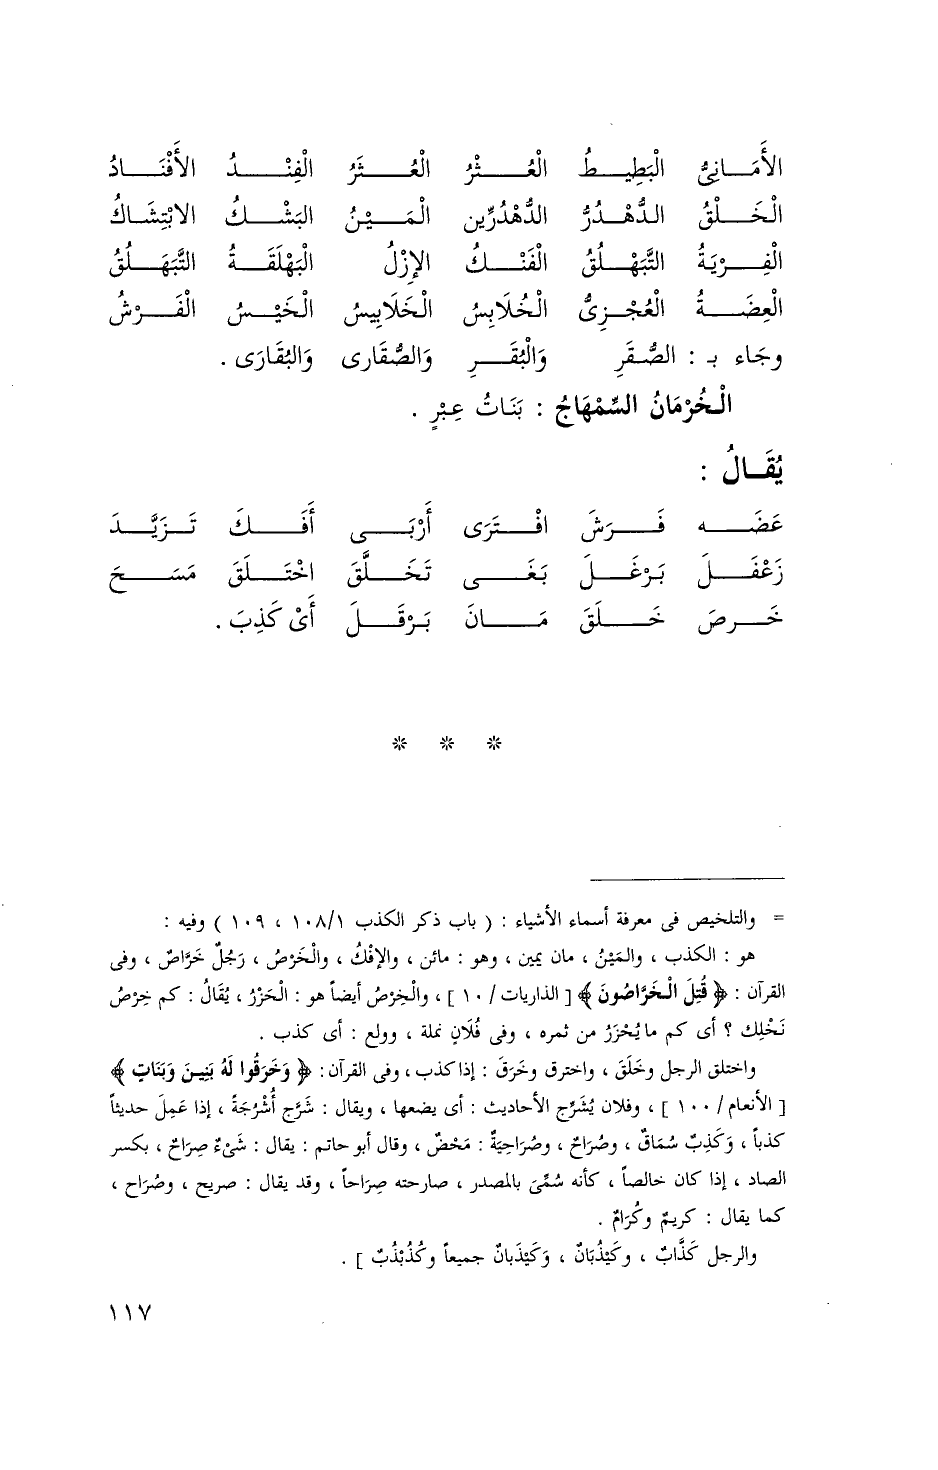 الأَمَـانِىُّ الْبَطِيـطُ الْعُـثْرُ الْعُـثَرُ الْفِنْـدُ الأَفْنَـادُ
الْخَـلْقُ الـدُّهْـدُرُّ الدُّهْدُرَّين الْمَـيْنُ البَشْـكُ الابْتِشَـاكُ
الْفِـرْيَةُ التَّبَهْـلُقُ الْفَنْـكُ الإِزْلُ الْبَهْلَقَـةُ التَّبَهْـلُقُ
الْعِضَـةُ الْعُجْـرِىُّ الْخُلَابِسُ الْخَلَابِيسُ الْخَيْـسُ الْفَـرْشُ
وجَاء بـ : الصُّقَرِ وَالْبُقَـرِ وَالصُّقَارى وَالبُقَارَى .
الْـخُرْمَانُ السِّمْهَاجُ : بَنَاتُ عِبْرٍ .
يُقَـالُ :
عَضَـه فَـرَشَ افْـتَرَى أَرْبَـى أَفَـكَ تَـزَيَّـدَ
زَعْفَـلَ بَـرْغَـلَ بَغَـى تَخَـلَّقَ اخْتَـلَقَ مَسَـحَ
خَـرصَ خَـلَقَ مَـانَ بَـرْقَـلَ أَىْ كَذِبَ .
* * *
= والتلخيص فى معرفة أسماء الأشياء : ( باب ذكر الكذب ١٠٨/١ ، ١٠٩ ) وفيه :
هو : الكذب ، والمَيْنُ ، مان يمين ، وهو : مائن ، والإفْكُ ، والْخَرْصُ ، رَجُلٌ خَرَّاصٌ ، وفى
القرآن : ﴿ قُتِلَ الْخَرَّاصُونَ ﴾ [ الذاريات / ١٠ ] ، والْخِرْصُ أيضاً هو : الْحَزْرُ ، يُقَالُ : كم خِرْصُ
نَخْلِك ؟ أى كم مايُحْزَرُ من ثمره ، وفى فُلَانٍ نملة ، وولع : أى كذب .
واختلق الرجل وخَلَقَ ، واخترق وخَرَقَ : إذا كذب ، وفى القرآن : ﴿ وَخَرَقُوا لَهُ بَنِينَ وَبَنَاتٍ ﴾
[ الأنعام / ١٠٠ ] ، وفلان يُشَرِّج الأحاديث : أى يضعها ، ويقال : شَرَّج أُشْرُجَةً ، إذا عَمِلَ حديثاً
كذباً ، وَكَذِبٌ سُمَاقٌ ، وصُرَاحٌ ، وصُرَاحِيَةٌ : مَحْضٌ ، وقال أبو حاتم : يقال : شَىْءٌ صِرَاحٌ ، بكسر
الصاد ، إذا كان خالصاً ، كأنه سُمِّىَ بالمصدر ، صارحته صِرَاحاً ، وقد يقال : صريح ، وصُرَاح ،
كما يقال : كريمٌ وكُرَامٌ .
والرجل كَذَّابٌ ، وكَيْذُبَانٌ ، وَكَيْذَبانٌ جميعاً وكُذُبْذُبٌ ] .
١١٧